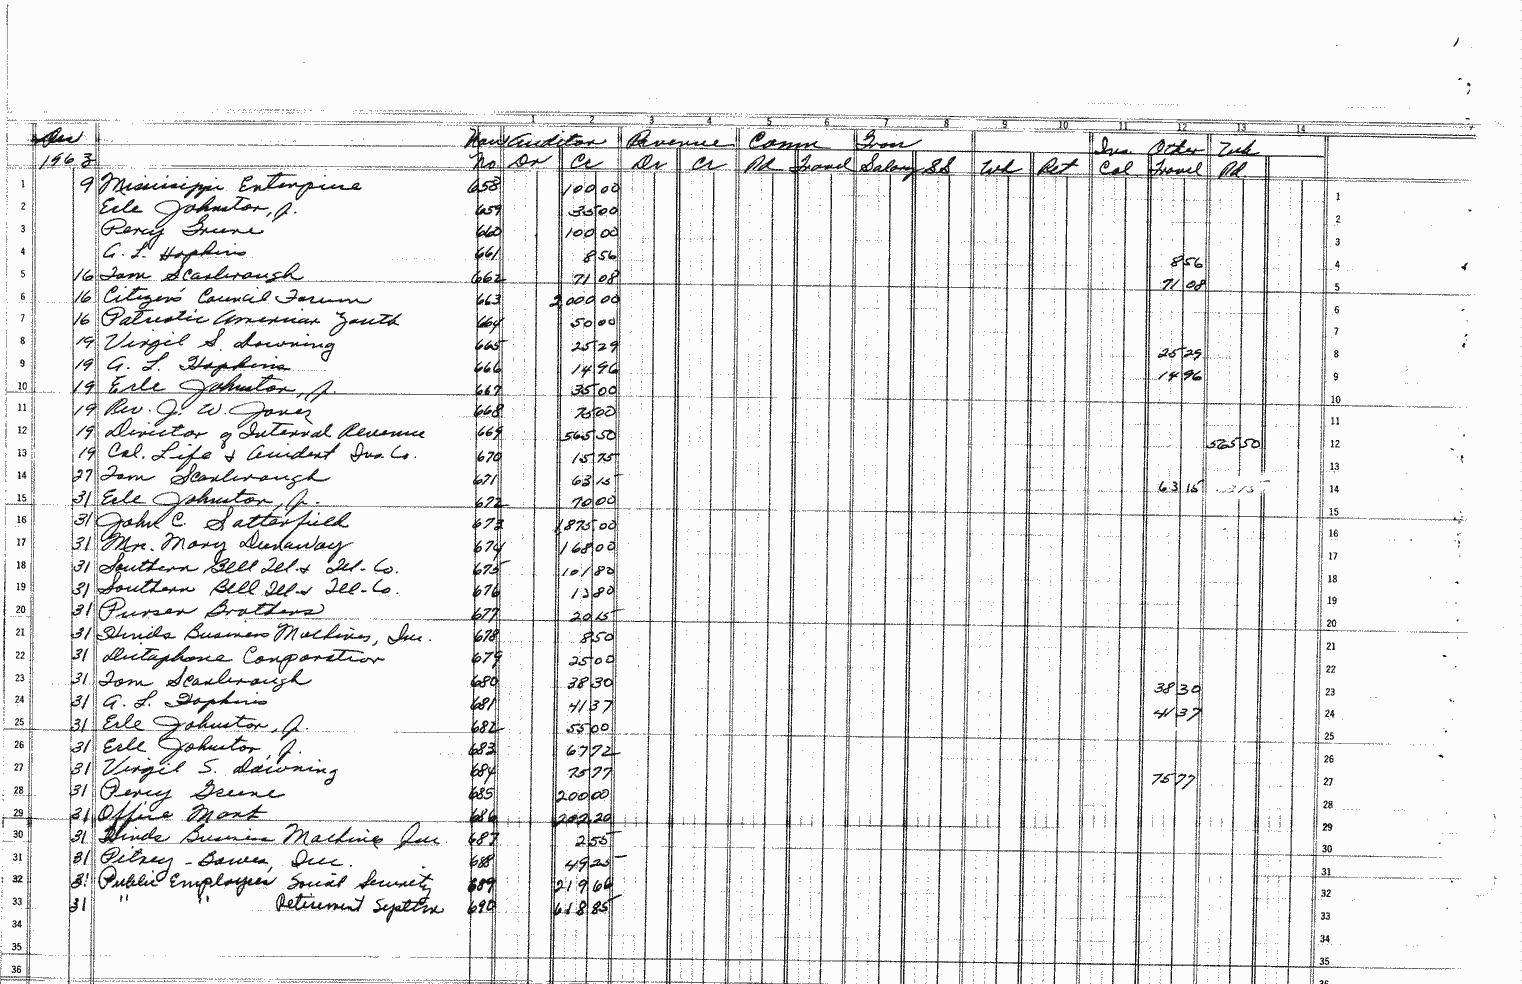 1 2 3 4 5 6 7 8 9 10 11 12 13 14
Dec Auditor Revenue Comm Tran Ins Other Wh
1963 No Dr Cr Dr Cr Pd Travel Salary SS Wh Ret Cal Travel Pd
1 9 Mississippi Enterprise 658 100 00 1
2 Erle Johnston, Jr. 659 35 00 2
3 Percy Greene 660 100 00 3
4 A. L. Hopkins 661 8 56 8 56 4
5 16 Tom Scarbrough 662 71 08 71 08 5
6 16 Citizens' Council Forum 663 2000 00 6
7 16 Patriotic American Youth 664 50 00 7
8 19 Virgil S. Downing 665 25 29 25 29 8
9 19 A. L. Hopkins 666 14 96 14 96 9
10 19 Erle Johnston, Jr. 667 35 00 10
11 19 Rev. J. W. Jones 668 75 00 11
12 19 Director of Internal Revenue 669 565 50 565 50 12
13 19 Cal. Life & Accident Ins. Co. 670 15 75 13
14 27 Tom Scarbrough 671 63 15 63 15 14
15 31 Erle Johnston, Jr. 672 70 00 15
16 31 John C. Satterfield 673 1875 00 16
17 31 Mrs. Mary Dunaway 674 168 00 17
18 31 Southern Bell Tel & Tel. Co. 675 101 80 18
19 31 Southern Bell Tel & Tel. Co. 676 13 80 19
20 31 Purser Brothers 677 20 15 20
21 31 Hinds Business Machines, Inc. 678 8 50 21
22 31 Dictaphone Corporation 679 25 00 22
23 31 Tom Scarbrough 680 38 30 38 30 23
24 31 A. L. Hopkins 681 41 37 41 37 24
25 31 Erle Johnston, Jr. 682 55 00 25
26 31 Erle Johnston, Jr. 683 67 72 26
27 31 Virgil S. Downing 684 75 77 75 77 27
28 31 Percy Greene 685 200 00 28
29 31 Office 686 202 20 29
30 31 Hinds Business Machines Inc 687 2 55 30
31 31 Pitney-Bowes, Inc. 688 49 25 31
32 31 Public Employees' Social Security 689 219 66 32
33 31 " " Retirement System 690 618 85 33
34 34
35 35
36